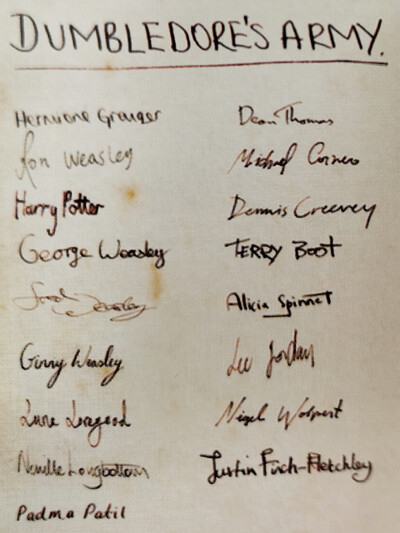 DUMBLEDORE'S ARMY.
Hermione Granger
Ron Weasley
Harry Potter
George Weasley
Fred Weasley
Ginny Weasley
Luna Lovegood
Neville Longbottom
Padma Patil
Dean Thomas
Michael Corner
Dennis Creevey
TERRY BOOT
Alicia Spinnet
Lee Jordan
Nigel Wolpert
Justin Finch-Fletchley